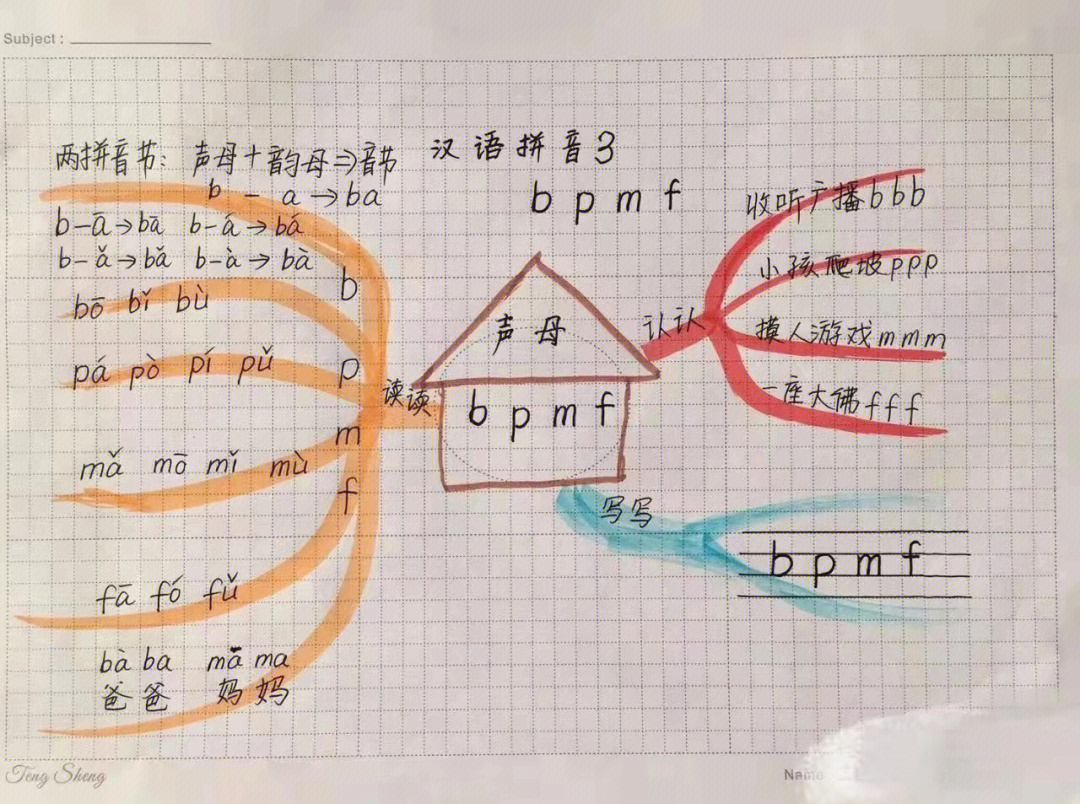 Subject :
汉语拼音3
b p m f
两拼音节：声母＋韵母⇒音节
b - a → ba
b-ā→bā b-á→bá
b-ǎ→bǎ b-à→bà
b
bō bǐ bù
p
pá pò pí pǔ
m
mǎ mō mǐ mù
f
fā fó fǔ
bà ba mā ma
爸爸 妈妈
读读
声母
b p m f
认认
收听广播bbb
小孩爬坡ppp
摸人游戏mmm
一座大佛fff
写写
b p m f
Teng Sheng
Name